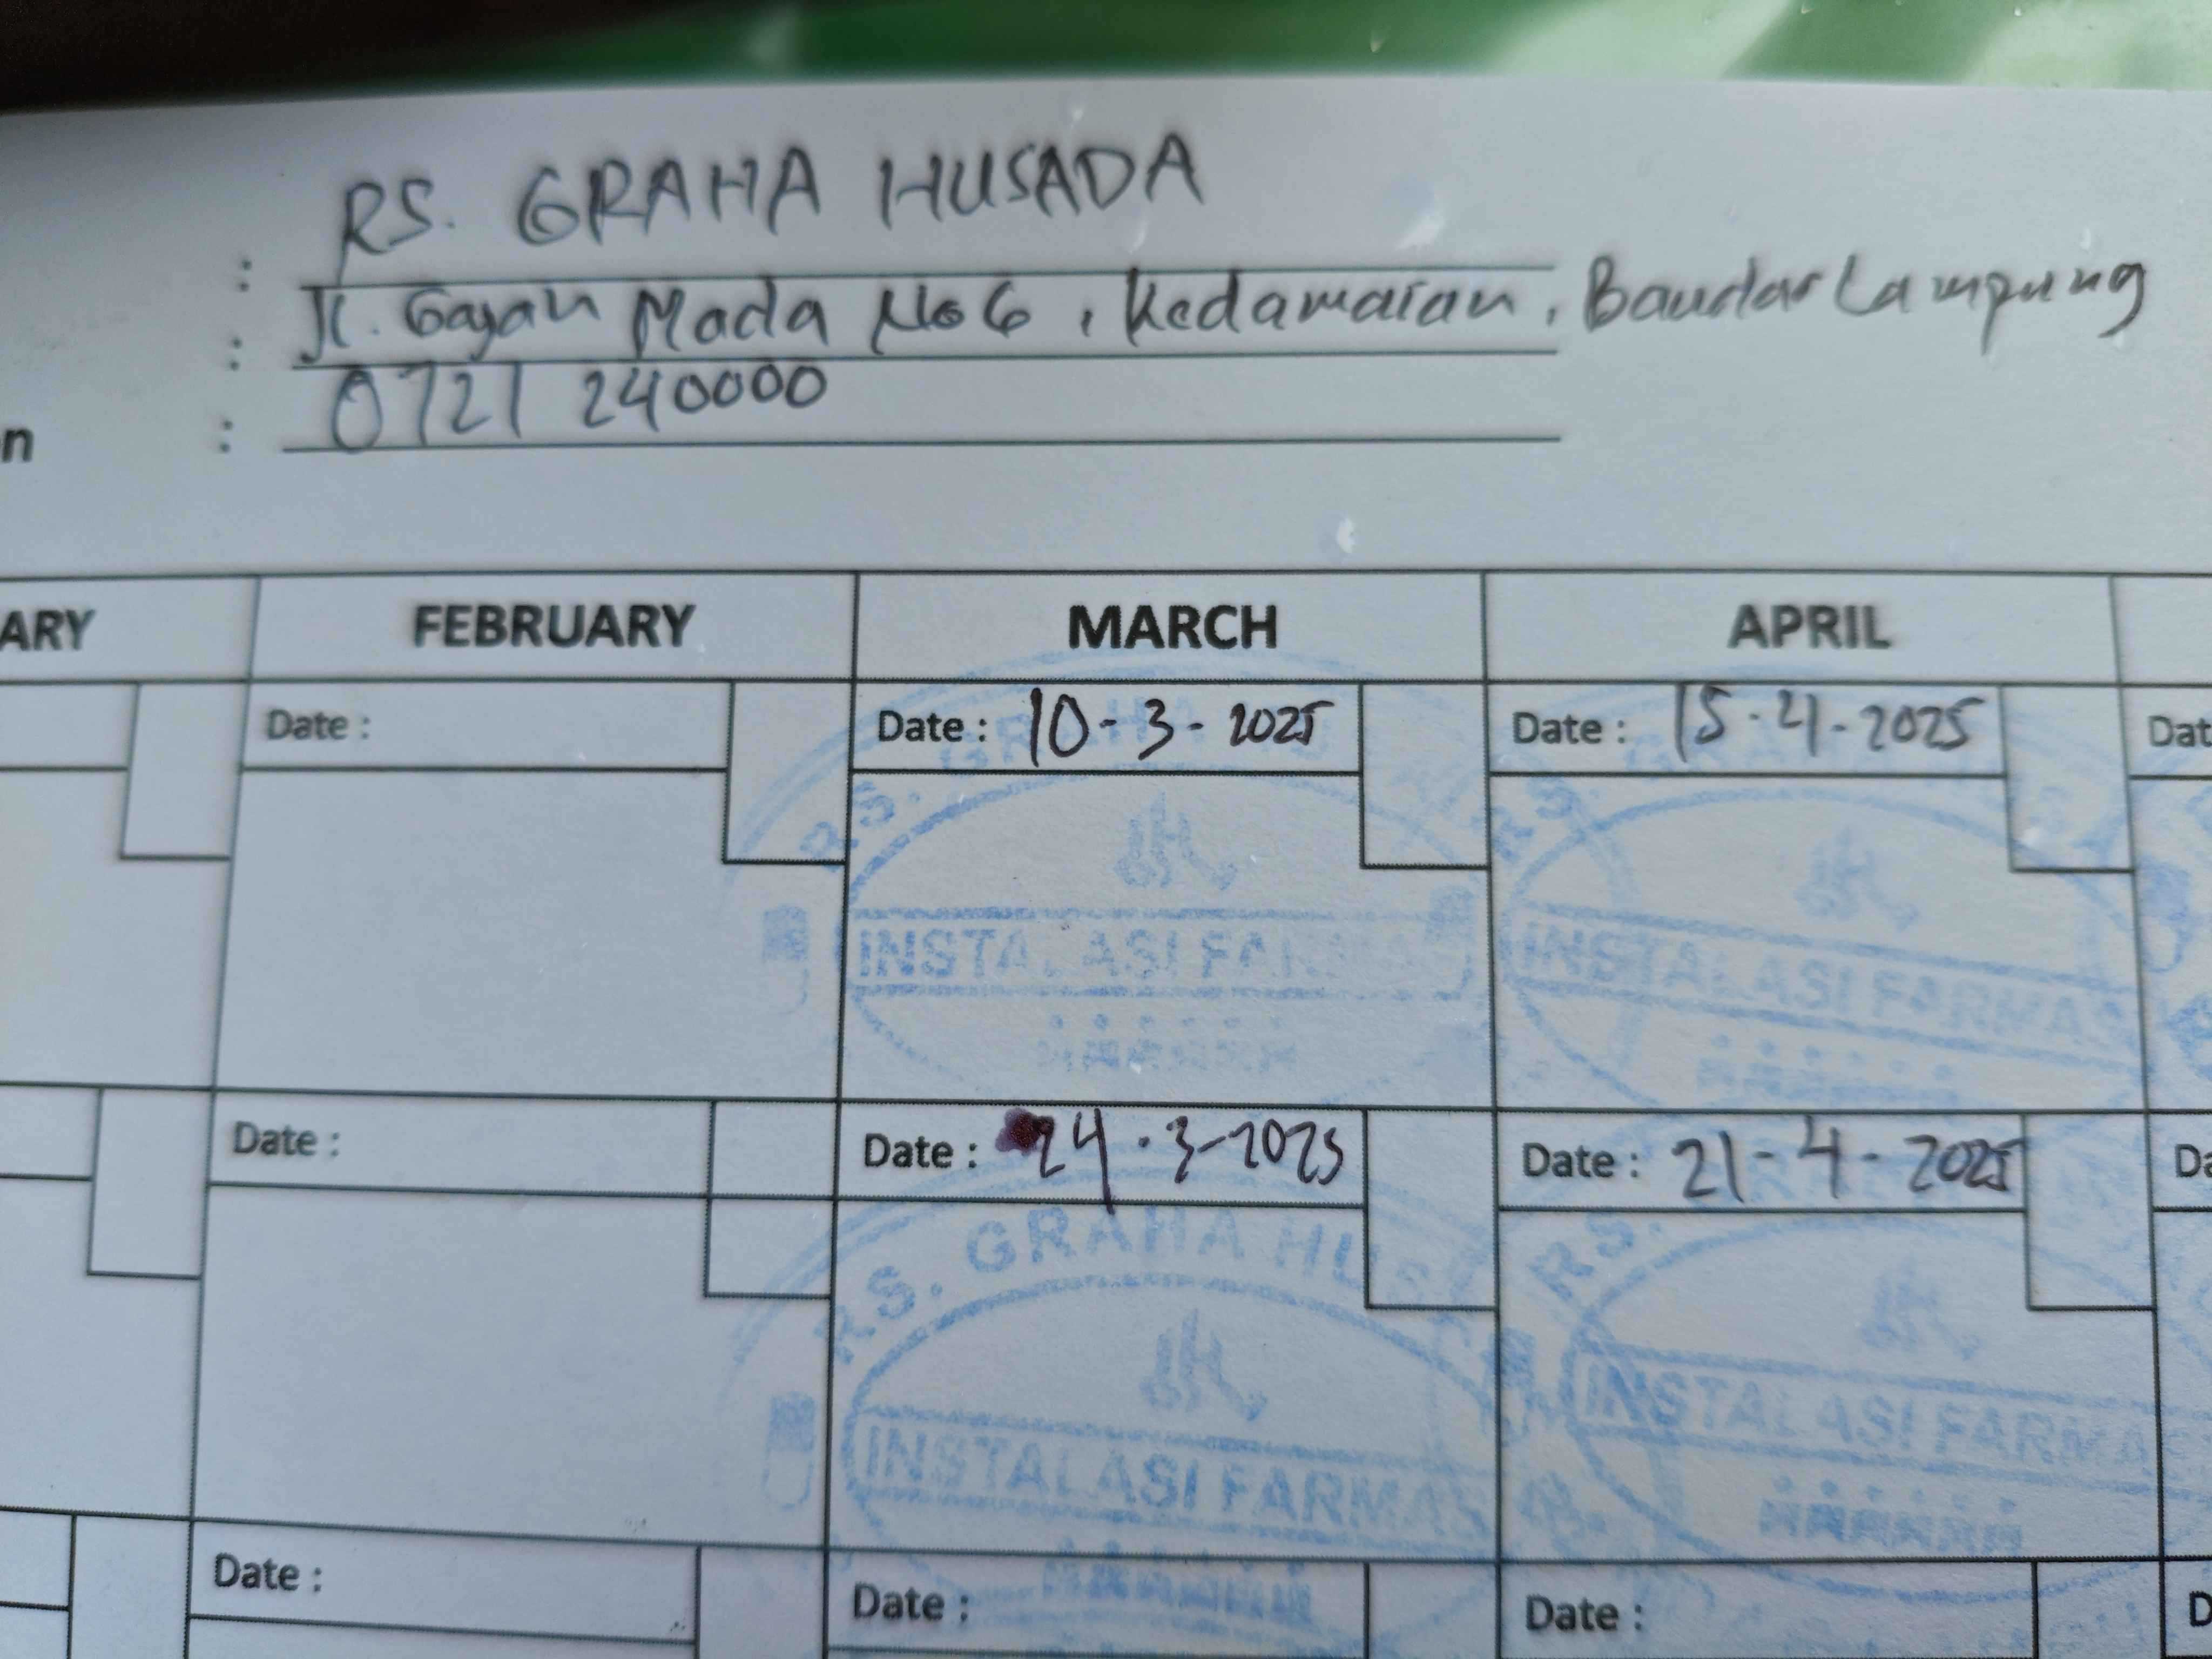 : RS. GRAHA HUSADA
: Jl. Gajah Mada No 6, Kedamaian, Bandar Lampung
n : 0721 240000
ARY FEBRUARY MARCH APRIL
Date : Date : 10-3-2025 Date : 15-4-2025 Dat
RS. GRAHA
RS.
INSTALASI FARMA
INSTALASI FARMAS
Date : Date : 24-3-2025 Date : 21-4-2025 Da
RS. GRAHA HUSA
RS.
INSTALASI FARMAS
INSTALASI FARMAS
Date : Date : Date : D